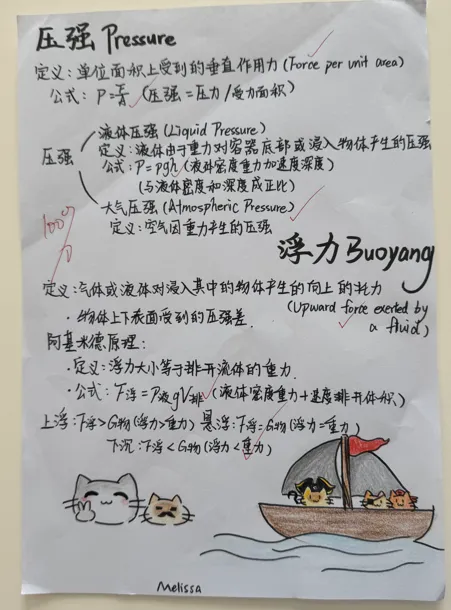 压强 Pressure
定义：单位面积上受到的垂直作用力(Force per unit area)
公式：P=F/A (压强=压力/受力面积)
液体压强(Liquid Pressure)
定义：液体由于重力对容器底部或浸入物体产生的压强
压强
公式：P=ρgh(液体密度重力加速度深度)
(与液体密度和深度成正比)
大气压强(Atmospheric Pressure)
定义：空气因重力产生的压强
100分
浮力Buoyang
定义：气体或液体对浸入其中的物体产生的向上的托力
(Upward force exerted by
a fluid)
·物体上下表面受到的压强差.
阿基米德原理：
·定义：浮力大小等于排开流体的重力.
·公式：F浮=ρ液gV排(液体密度重力+速度排开体积)
上浮：F浮>G物(浮力>重力) 悬浮：F浮=G物(浮力=重力)
下沉：F浮<G物(浮力<重力)
Melissa